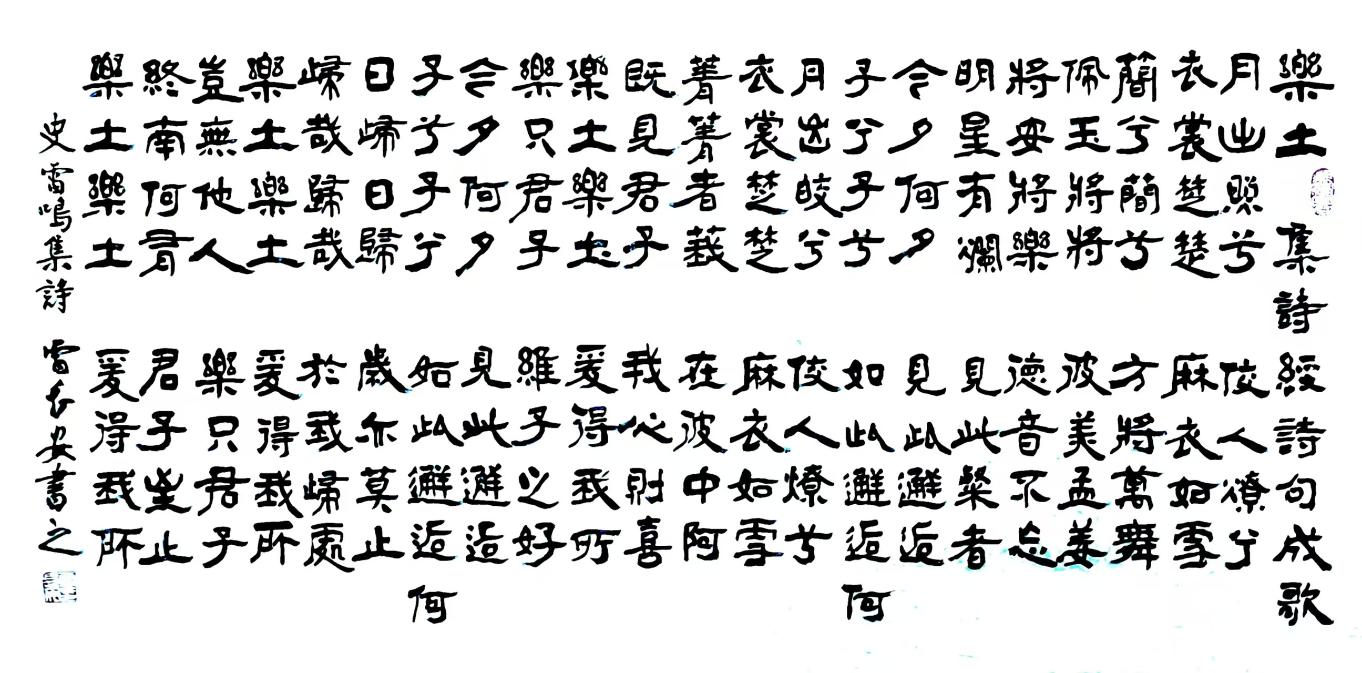 樂土 集詩經詩句成歌
月出照兮 佼人燎兮
衣裳楚楚 麻衣如雪
簡兮簡兮 方將萬舞
佩玉將將 彼美孟姜
將安將樂 德音不忘
明星有爛 見此粲者
今夕何夕 見此邂逅
子兮子兮 如此邂逅何
月出皎兮 佼人燎兮
衣裳楚楚 麻衣如雪
菁菁者莪 在彼中阿
既見君子 我心則喜
樂土樂土 爰得我所
樂只君子 維子之好
今夕何夕 見此邂逅
子兮子兮 如此邂逅何
曰歸曰歸 歲亦莫止
歸哉歸哉 於我歸處
樂土樂土 爰得我所
豈無他人 樂只君子
終南何有 君子至止
樂土樂土 爰得我所
史雷鳴集詩 雷長安書之